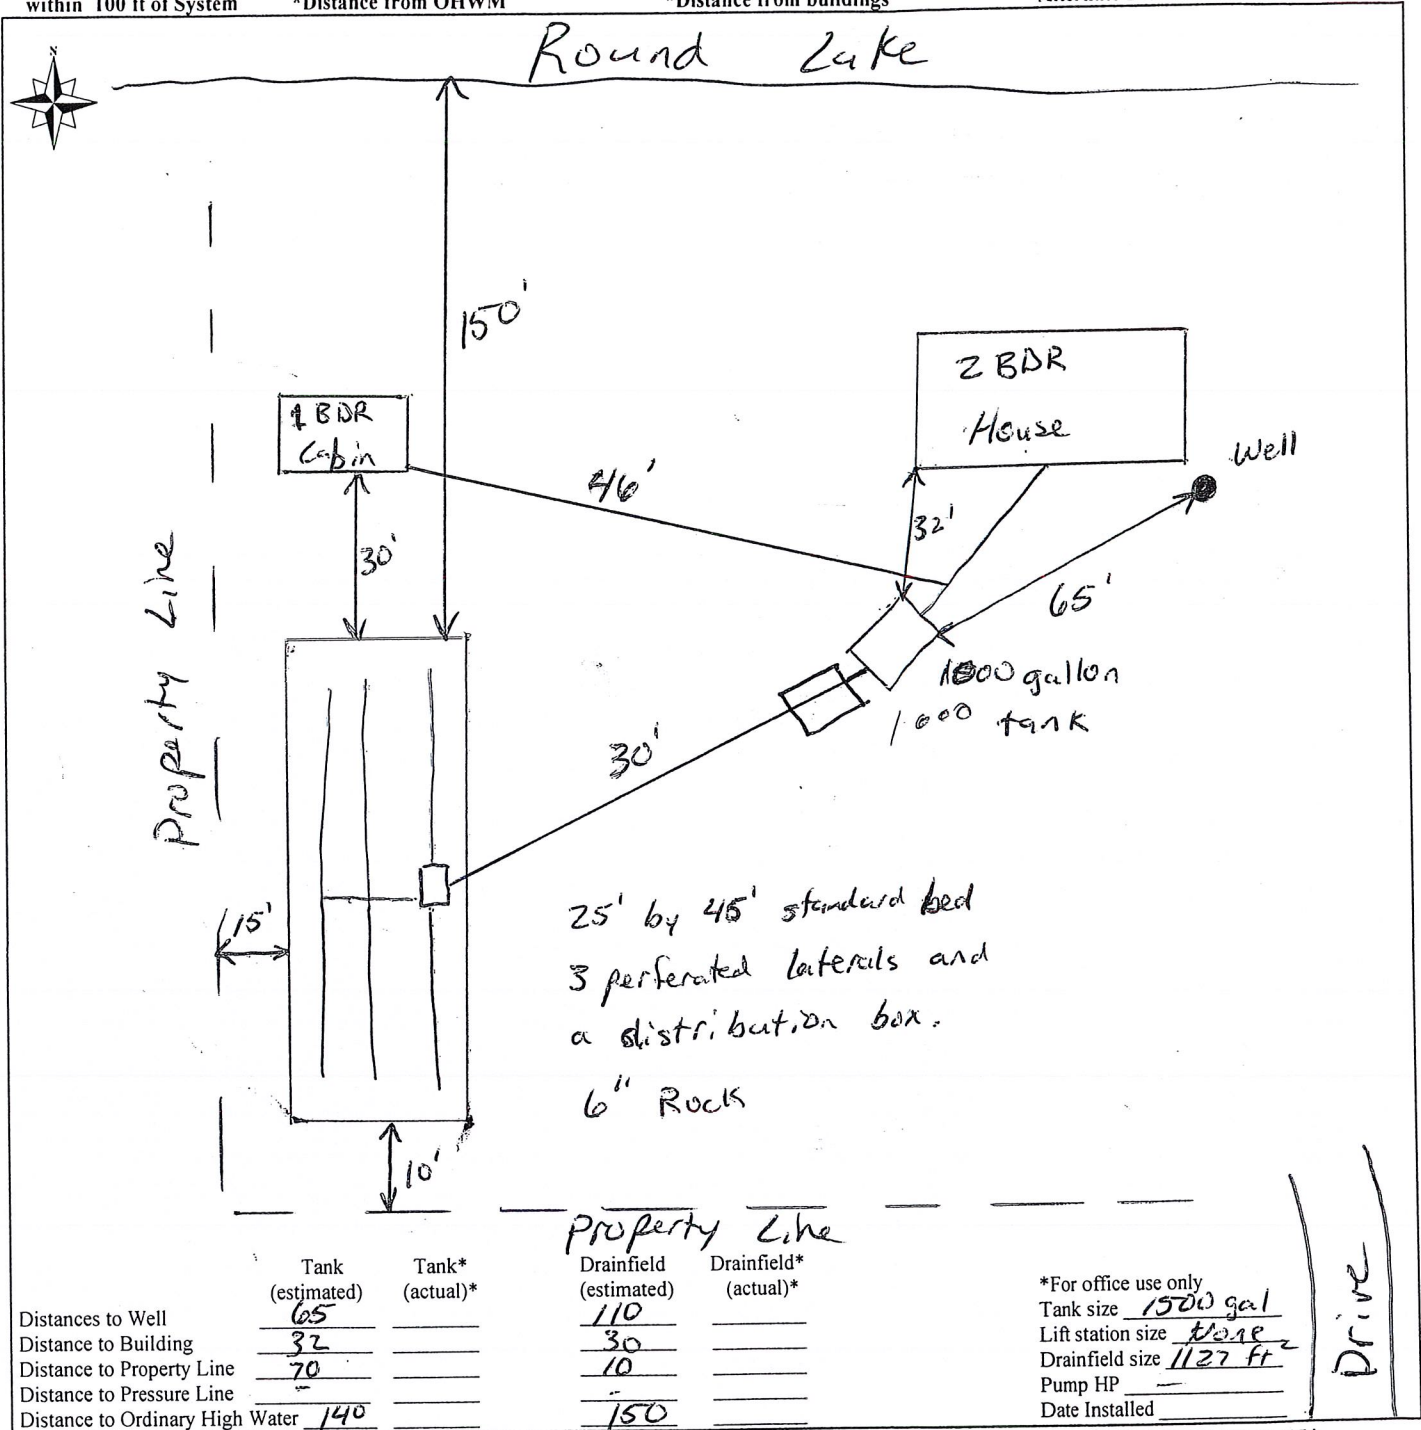 within 100 ft of System *Distance from OHWM *Distance from buildings
N
Round Lake
150'
1 BDR
Cabin
2 BDR
House
Well
46'
32'
30'
65'
Property Line
1000 gallon
1000 tank
30'
15'
25' by 45' standard bed
3 perferated laterals and
a distribution box.
6" Rock
10'
Property Line
Drive
Tank Tank* Drainfield Drainfield*
(estimated) (actual)* (estimated) (actual)*
Distances to Well 65 110
Distance to Building 32 30
Distance to Property Line 70 10
Distance to Pressure Line - -
Distance to Ordinary High Water 140 150
*For office use only
Tank size 1500 gal
Lift station size None
Drainfield size 1127 ft²
Pump HP —
Date Installed